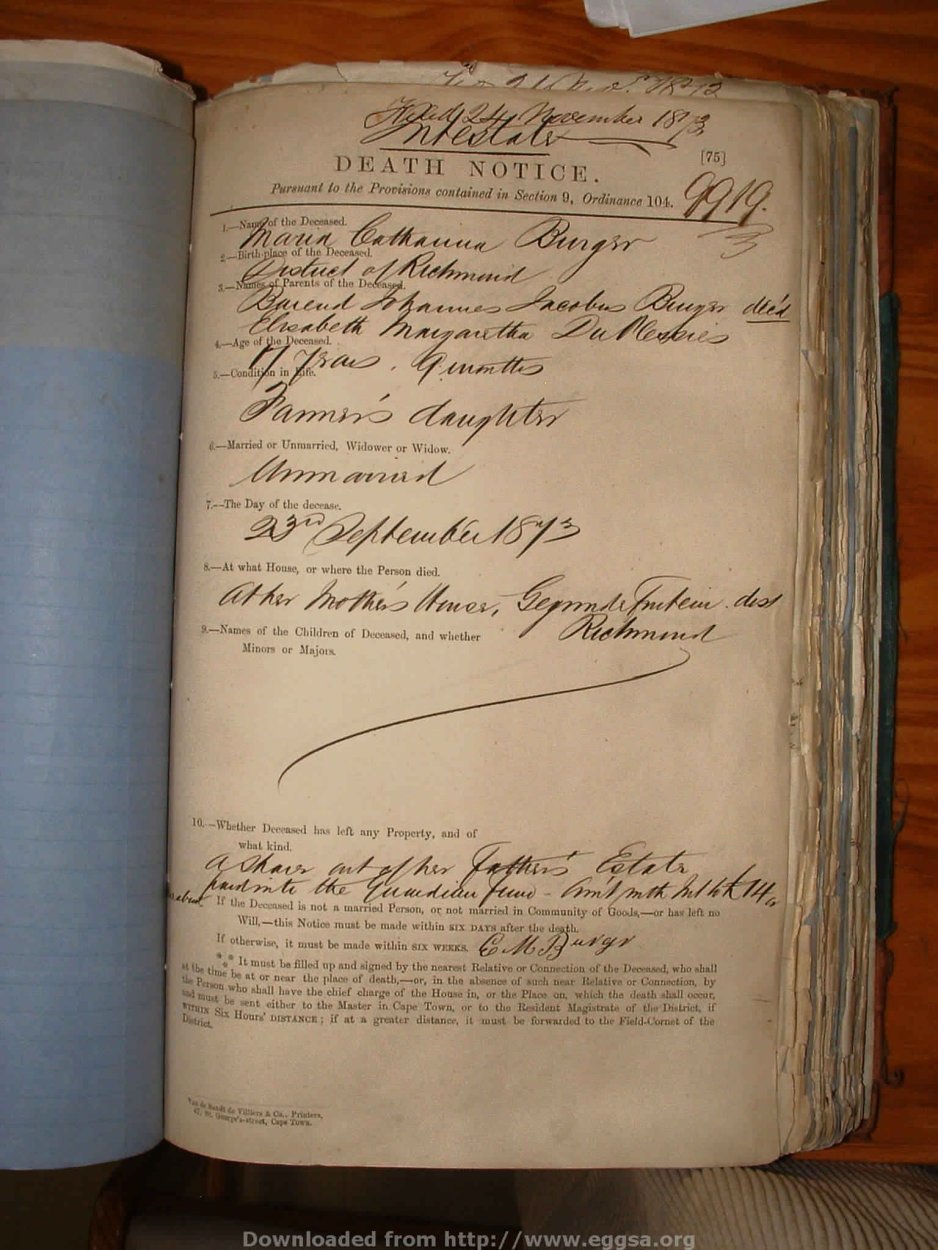 Filed 24 November 1873
Intestate
[75]
DEATH NOTICE.
Pursuant to the Provisions contained in Section 9, Ordinance 104.
9919.
3
1.—Name of the Deceased.
Maria Catharina Burger
2.—Birth-place of the Deceased.
District of Richmond
3.—Names of Parents of the Deceased.
Barend Johannes Jacobus Burger dec'd
Elisabeth Margaretha Du Plessis
4.—Age of the Deceased.
17 Years. 9 months
5.—Condition in Life.
Farmer's daughter
6.—Married or Unmarried, Widower or Widow.
Unmarried
7.—The Day of the decease.
23rd September 1873
8.—At what House, or where the Person died.
At her Mother's House, dist
Richmond
9.—Names of the Children of Deceased, and whether
Minors or Majors.
10.—Whether Deceased has left any Property, and of
what kind.
A share out of her Father's Estate
paid into the Guardian fund
If the Deceased is not a married Person, or not married in Community of Goods,—or has left no
Will,—this Notice must be made within SIX DAYS after the death.
If otherwise, it must be made within SIX WEEKS. E M Burger
*** It must be filled up and signed by the nearest Relative or Connection of the Deceased, who shall
at the time be at or near the place of death,—or, in the absence of such near Relative or Connection, by
the Person who shall have the chief charge of the House in, or the Place on, which the death shall occur,
and must be sent either to the Master in Cape Town, or to the Resident Magistrate of the District, if
WITHIN SIX HOURS' DISTANCE; if at a greater distance, it must be forwarded to the Field-Cornet of the
District.
Van de Sandt de Villiers & Co., Printers,
47, St. George's-street, Cape Town.
Downloaded from http://www.eggsa.org